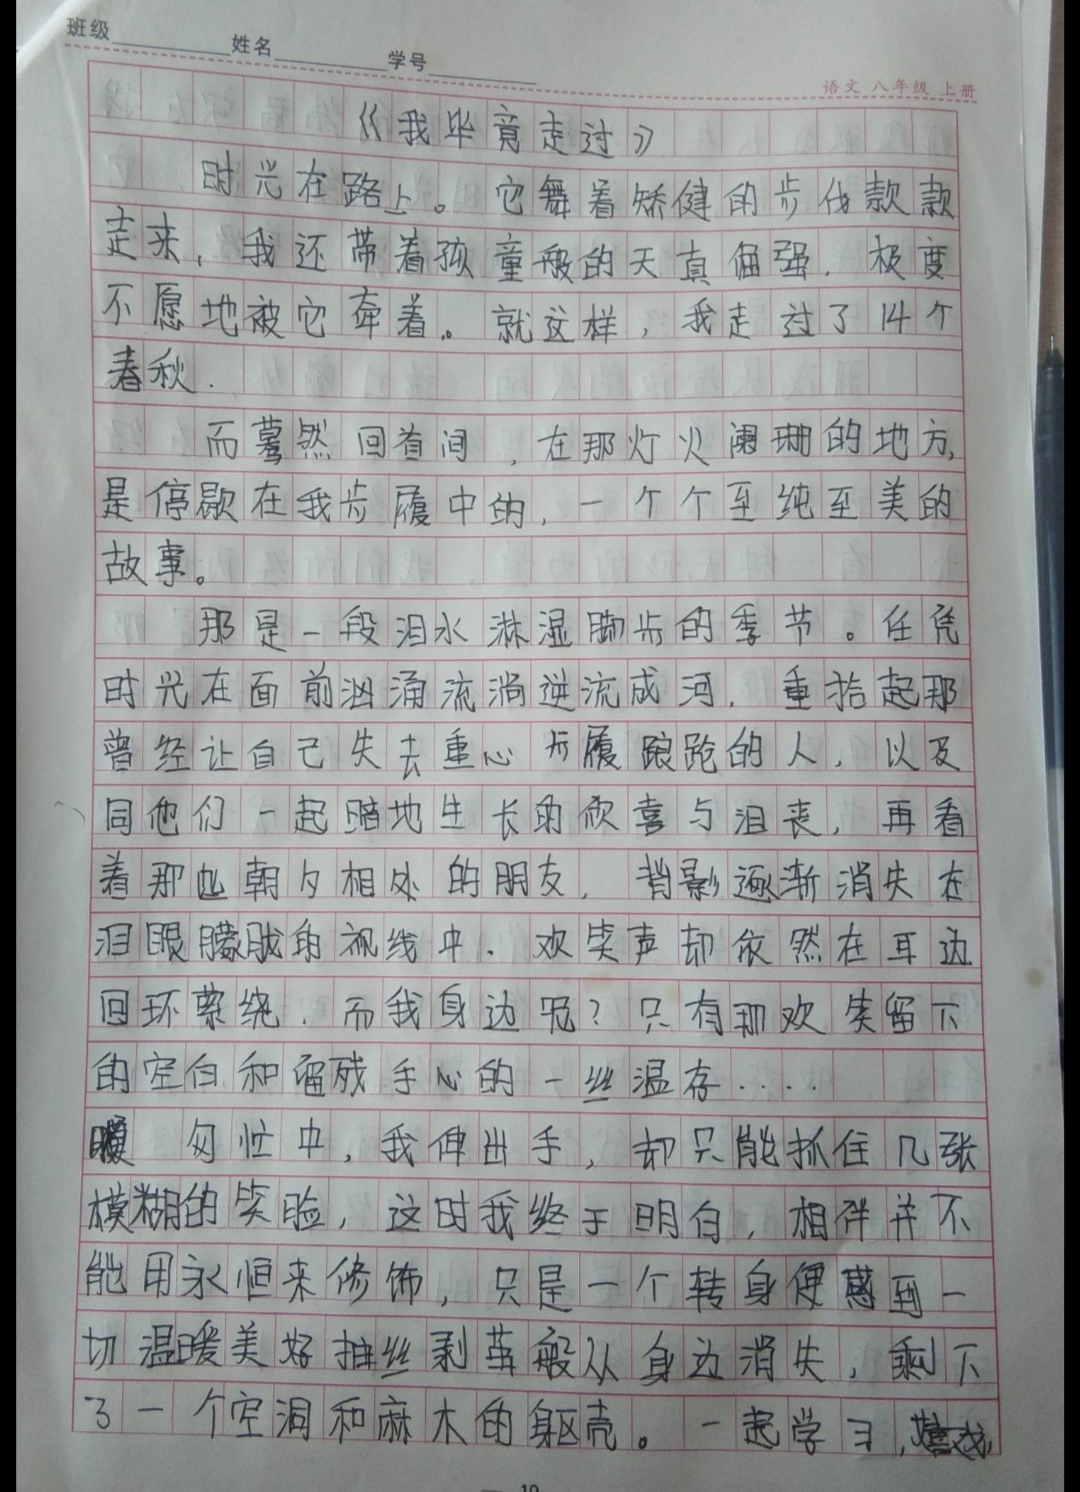 班级 姓名 学号
语文 八年级 上册
《我毕竟走过》
时光在路上。它舞着矫健的步伐款款
走来，我还带着孩童般的天真倔强，极度
不愿地被它牵着。就这样，我走过了14个
春秋.
而蓦然回首间，在那灯火阑珊的地方，
是停歇在我步履中的，一个个至纯至美的
故事。
那是一段泪水淋湿脚步的季节。任凭
时光在面前汹涌流淌逆流成河，重拾起那
曾经让自己失去重心步履踉跄的人，以及
同他们一起暗地生长的欣喜与沮丧，再看
着那些朝夕相处的朋友，背影逐渐消失在
泪眼朦胧的视线中.欢笑声却依然在耳边
回环萦绕.而我身边呢？只有那欢笑留下
的空白和留残手心的一丝温存....
匆忙中，我伸出手，却只能抓住几张
模糊的笑脸，这时我终于明白，相伴并不
能用永恒来修饰，只是一个转身便感到一
切温暖美好抽丝剥茧般从身边消失，剩下
了一个空洞和麻木的躯壳。一起学习，嬉戏
19